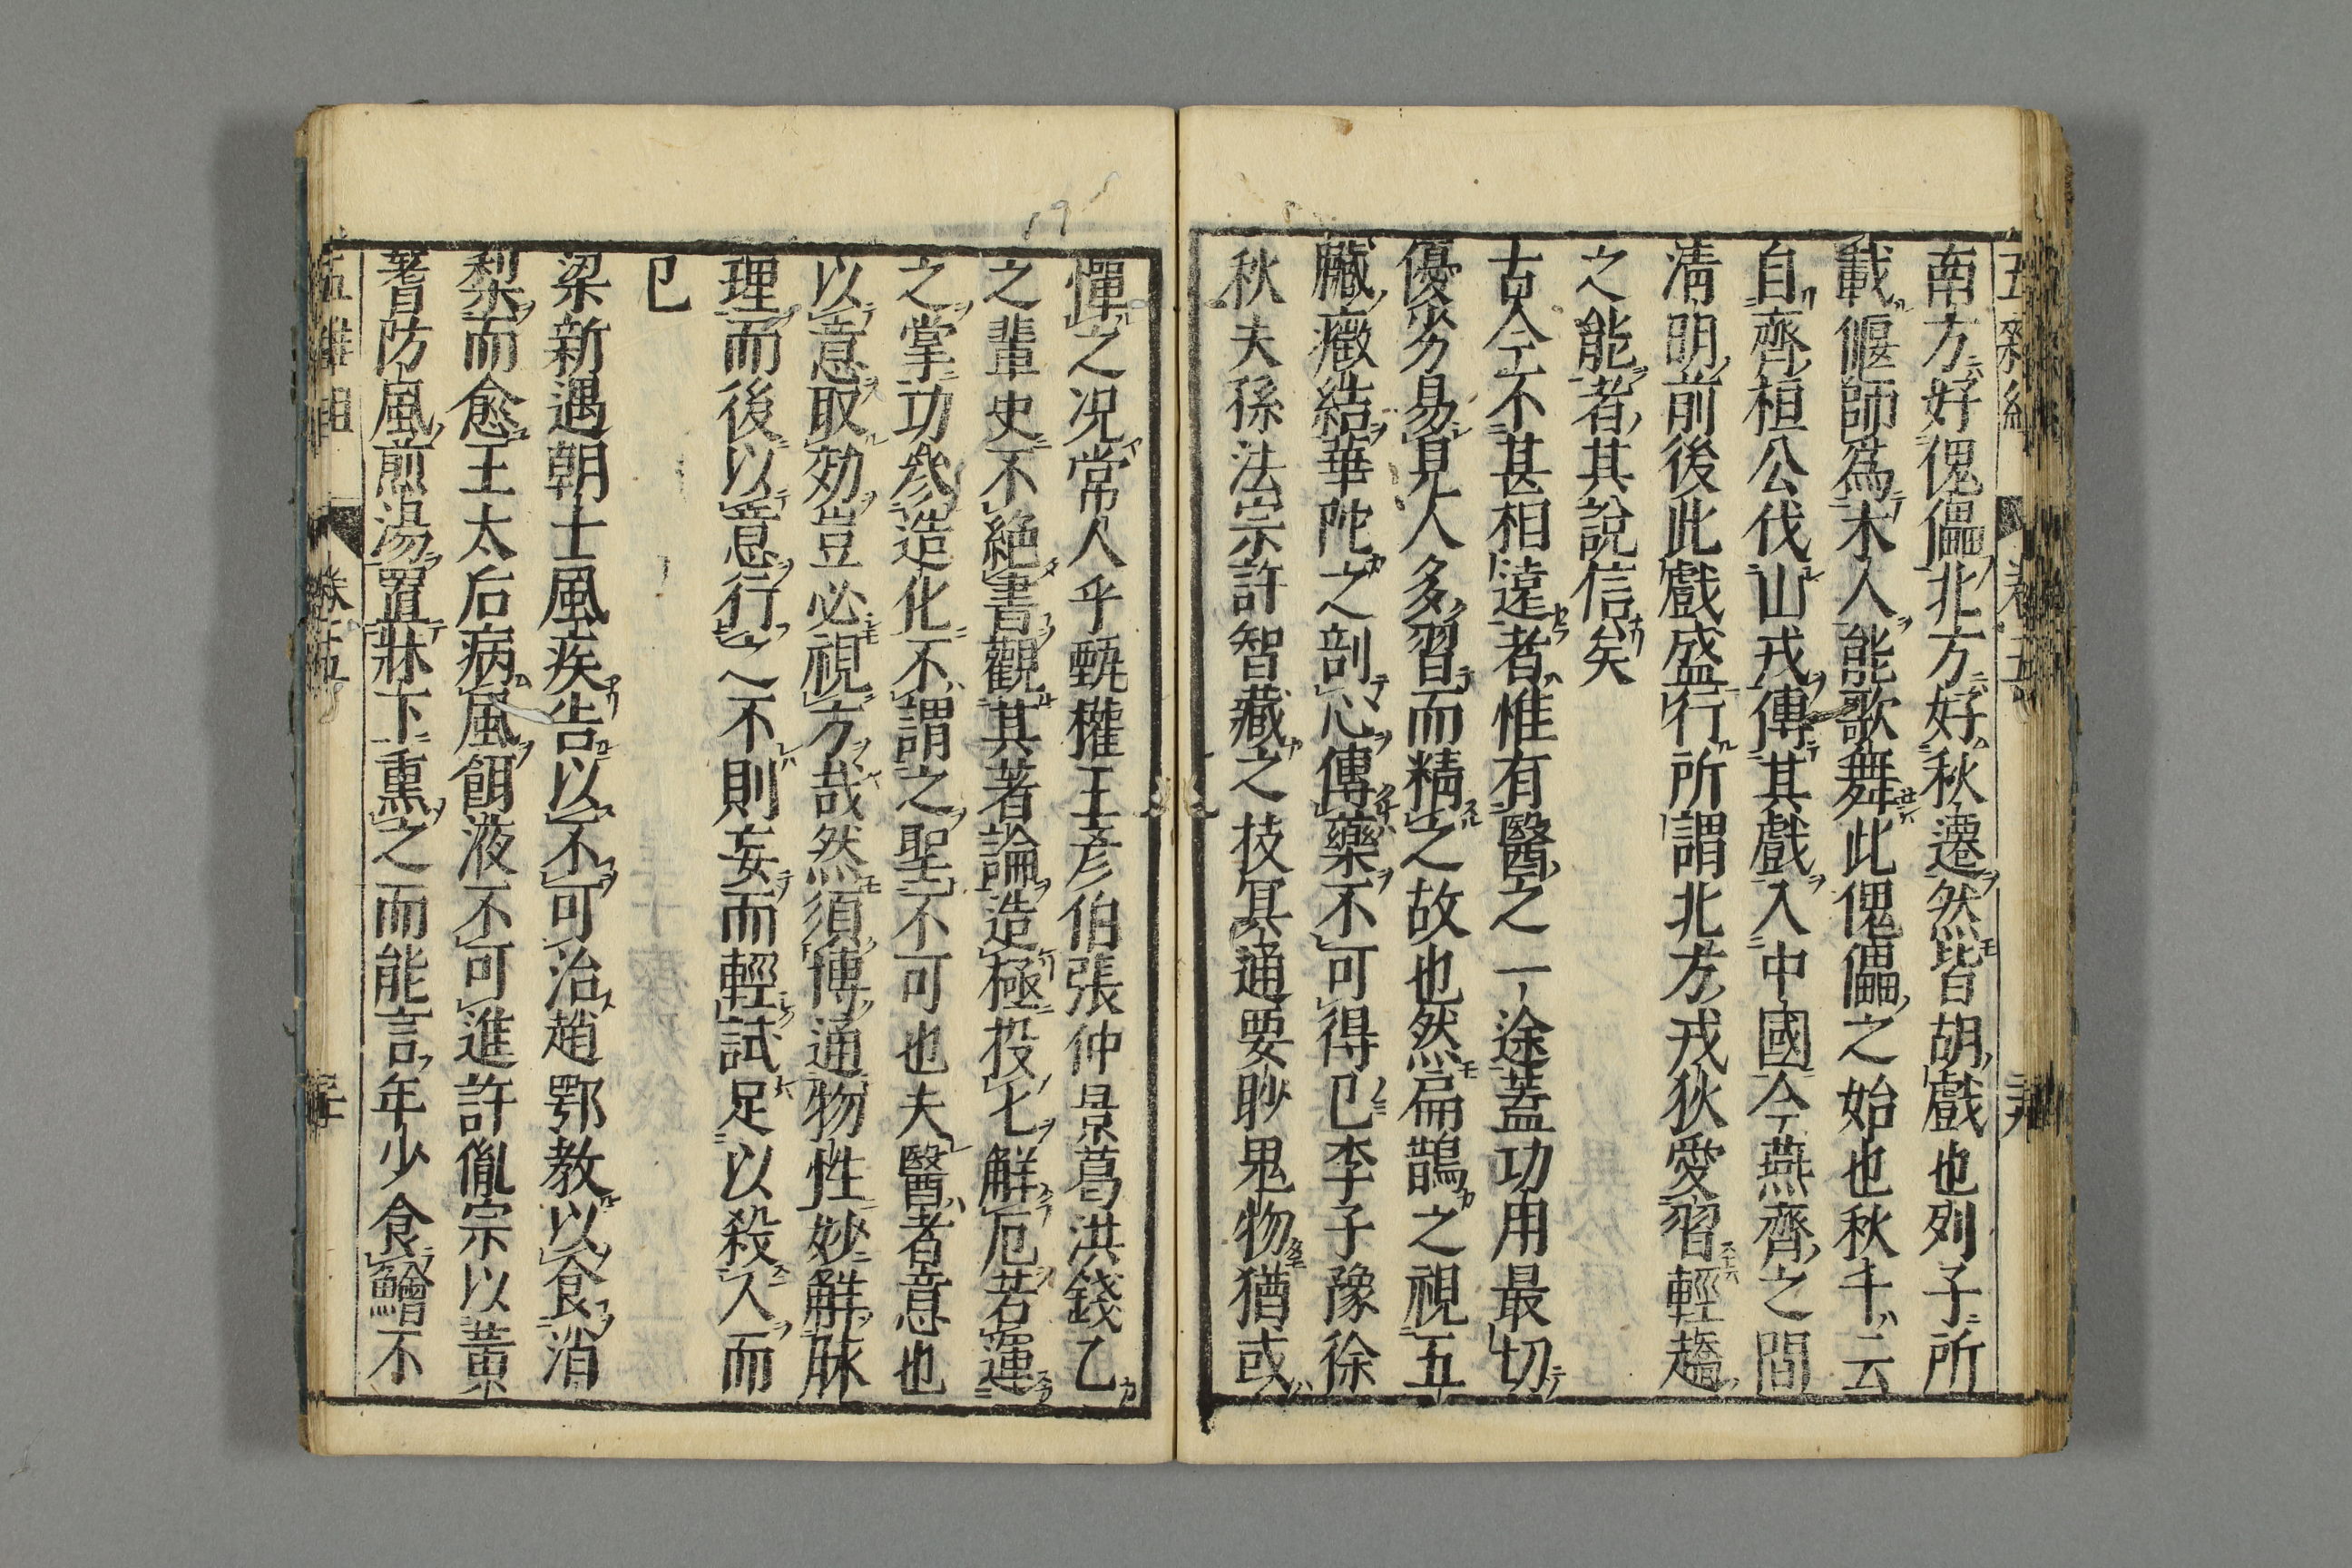 南方好傀儡北方好秋遷然皆胡戲也列子所
載偃師爲木人能歌舞此傀儡之始也秋千云
自齊桓公伐山戎傳其戲入中國今燕齊之間
清明前後此戲盛行所謂北方戎狄愛習輕趫
之能者其說信矣
古今不甚相遠者惟有醫之一途蓋功用最切
優劣易見人多習而精之故也然扁鵲之視五
臟癥結華陀之剖心傳藥不可得已李子豫徐
秋夫孫法宗許智藏之技冥通要眇鬼物猶或
憚之况常人乎甄權王彥伯張仲景葛洪錢乙
之輩史不絕書觀其著論造極投匕解厄若運
之掌功參造化不謂之聖不可也夫醫者意也
以意取効豈必視方哉然須博通物性妙解脉
理而後以意行之不則妄而輕試足以殺人而
已
梁新遇朝士風疾告以不可治趙鄂教以食消
梨而愈王太后病風餌液不可進許胤宗以黃
蓍防風煎湯置牀下熏之而能言年少食鱠不
卷五